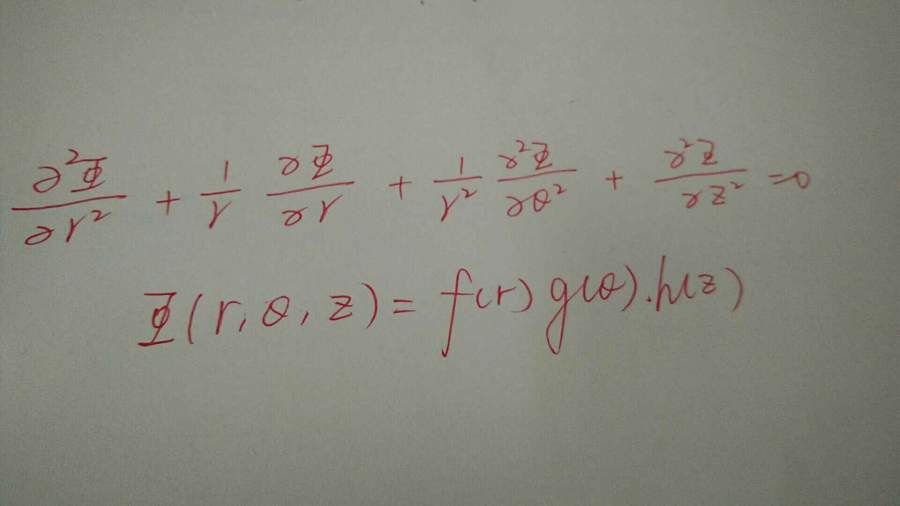 ∂²Φ/∂r² + 1/r ∂Φ/∂r + 1/r² ∂²Φ/∂θ² + ∂²Φ/∂z² = 0
Φ(r, θ, z) = f(r) g(θ) . h(z)